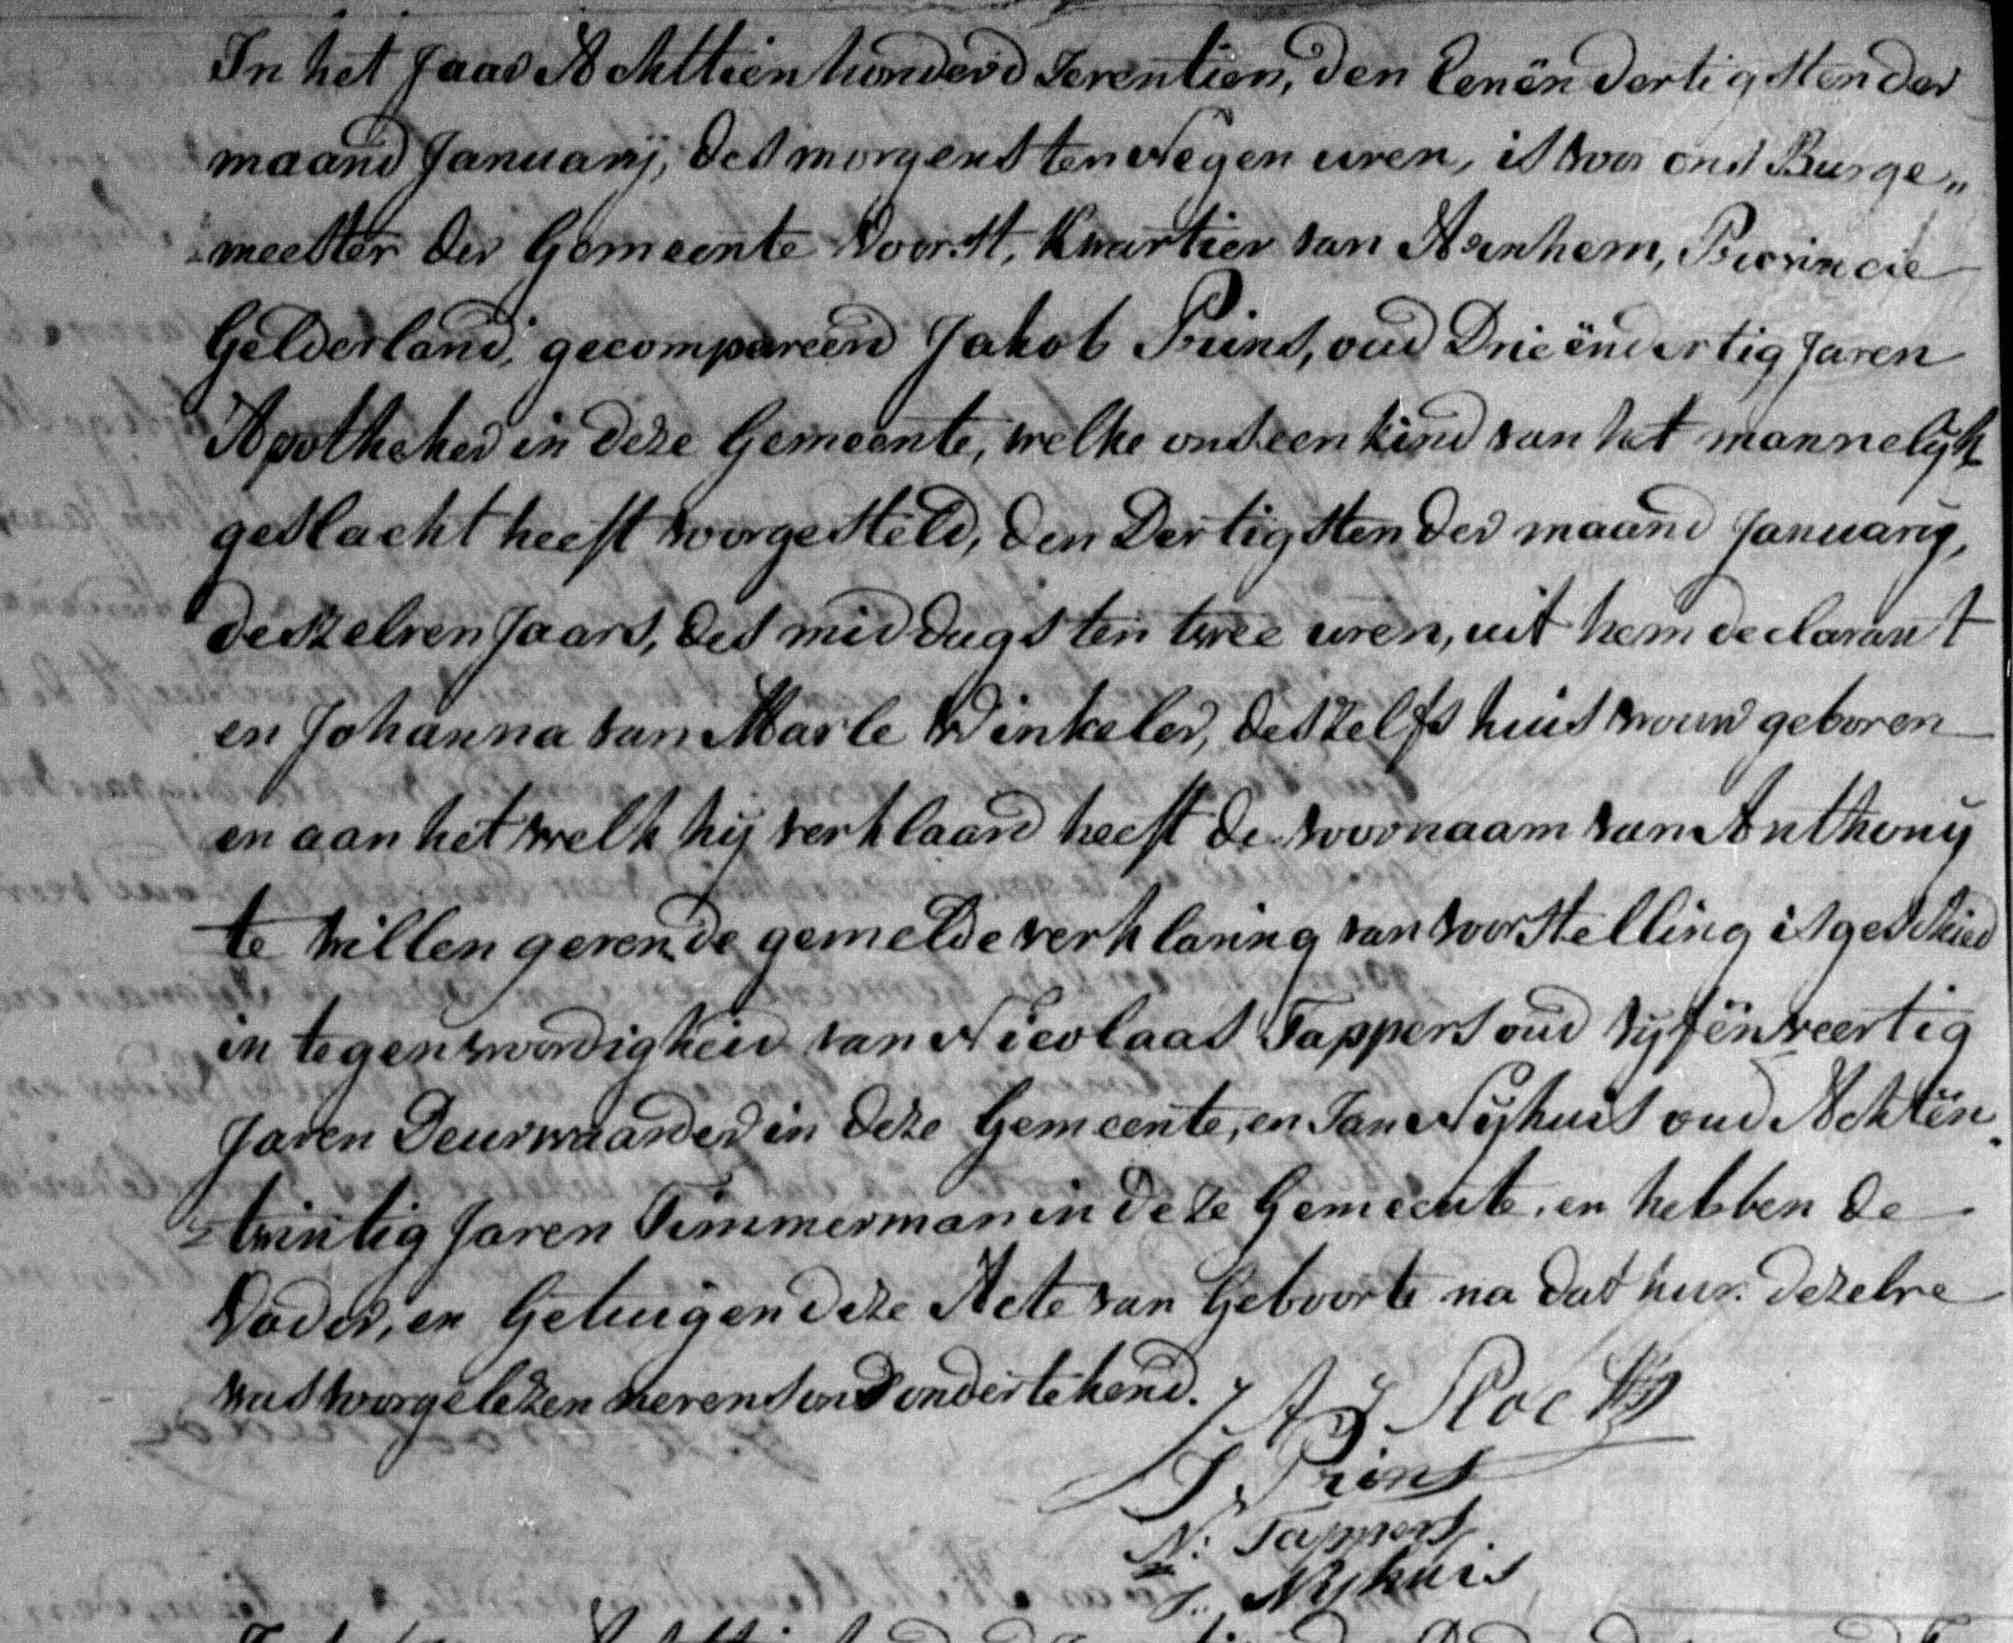 In het Jaar Achttienhonderd Seventien, den Eenën dertigsten der
maand January, des morgens ten Negen uren, is voor ons Burge„
„meester der Gemeente Voorst, Kwartier van Arnhem, Provincie
Gelderland, gecompareerd Jakob Prins, oud Drieëndertig Jaren
Apotheker in deze Gemeente, welke ons een kind van het mannelijk
geslacht heeft voorgesteld, den Dertigsten der maand January,
deszelven Jaars, des middags ten twee uren, uit hem declarant
en Johanna van Marle Winkeler, deszelfs huisvrouw geboren
en aan het welk hij verklaard heeft de voornaam van Anthony
te willen geven, de gemelde verklaring van voorstelling is geschied
in tegenwoordigheid van Nicolaas Tappers oud vijfënveertig
Jaren Deurwaarder in deze Gemeente, en Jan Nyhuis oud Achtën„
„twintig Jaren Timmerman in deze Gemeente, en hebben de
Vader, en Getuigen deze Acte van Geboorte na dat hun dezelve
was voorgelezen nevens ons ondertekend.
J Prins
N: Tappers
J. Nijhuis